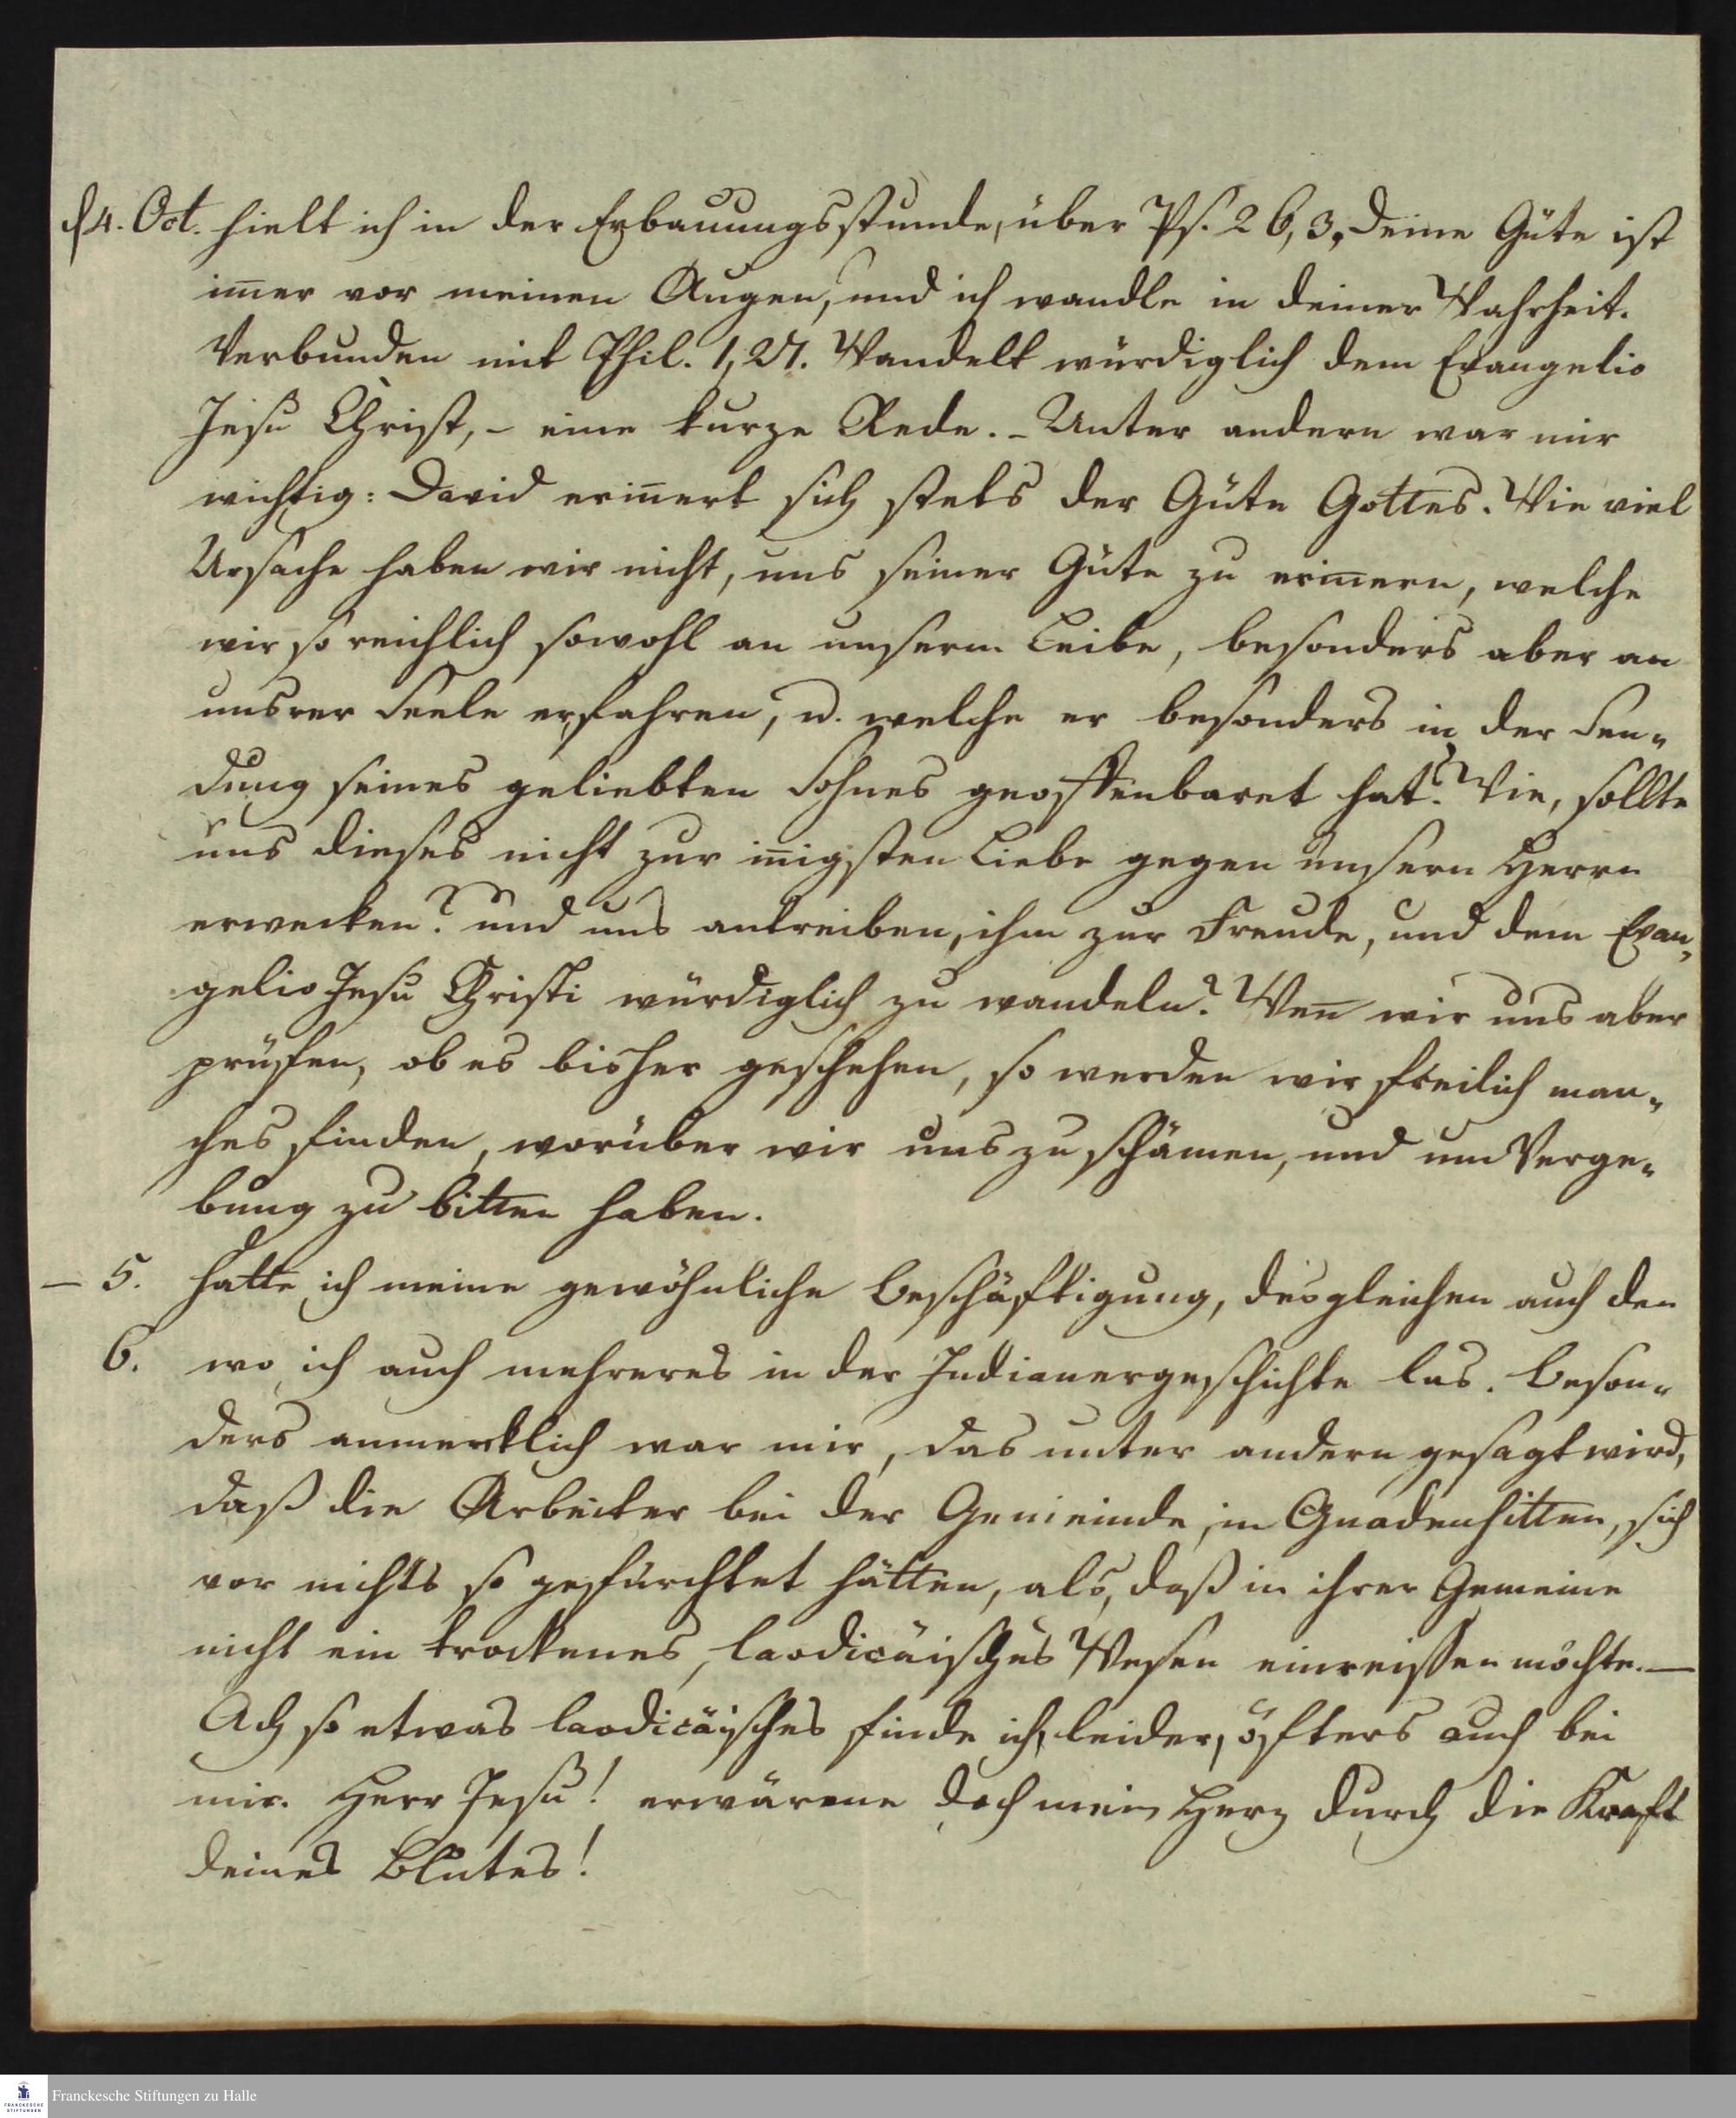 d 4. Oct. hielt ich in der Erbauungsstunde, über Ps. 26, 3, Deine Güte ist
im̄er vor meinen Augen, und ich wandle in deiner Wahrheit.
Verbunden mit Phil. 1, 27. Wandelt würdiglich dem Evangelio
Jesu Christ, - eine kurze Rede. - Unter andern war mir
wichtig: David erin̄ert sich stets der Güte Gottes. Wie viel
Ursache haben wir nicht, uns seiner Güte zu erin̄ern, welche
wir so reichlich sowohl an unserm Leibe, besonders aber an
unsrer Seele erfahren, u. welche er besonders in der Sen„
dung seines geliebten Sohnes geoffenbaret hat? Wie, sollte
uns dieses nicht zur in̄igsten Liebe gegen unsern Herrn
erwecken? und uns antreiben, ihm zur Freude, und dem Evan„
gelio Jesu Christi würdiglich zu wandeln? Wen̄ wir uns aber
prüfen, ob es bisher geschehen, so werden wir freilich man„
ches finden, worüber wir uns zu schämen, und um Verge„
bung zu bitten haben.
— 5. hatte ich meine gewöhnliche Beschäftigung, desgleichen auch den
6. wo ich auch mehreres in der Indianergeschichte las. Beson„
ders anmercklich war mir, das unter andern gesagt wird,
daß die Arbeiter bei der Gemeinde, in Gnadenhitten, sich
vor nichts so gefürchtet hätten, als, daß in ihrer Gemeine
nicht ein trockenes, laodicäisches Wesen einreissen möchte. —
Ach so etwas laodicäisches finde ich, leider, öfters auch bei
mir. Herr Jesu! erwärme doch mein Herz durch die Kraft
deines Blutes!
Franckesche Stiftungen zu Halle
FRANCKESCHE
STIFTUNGEN